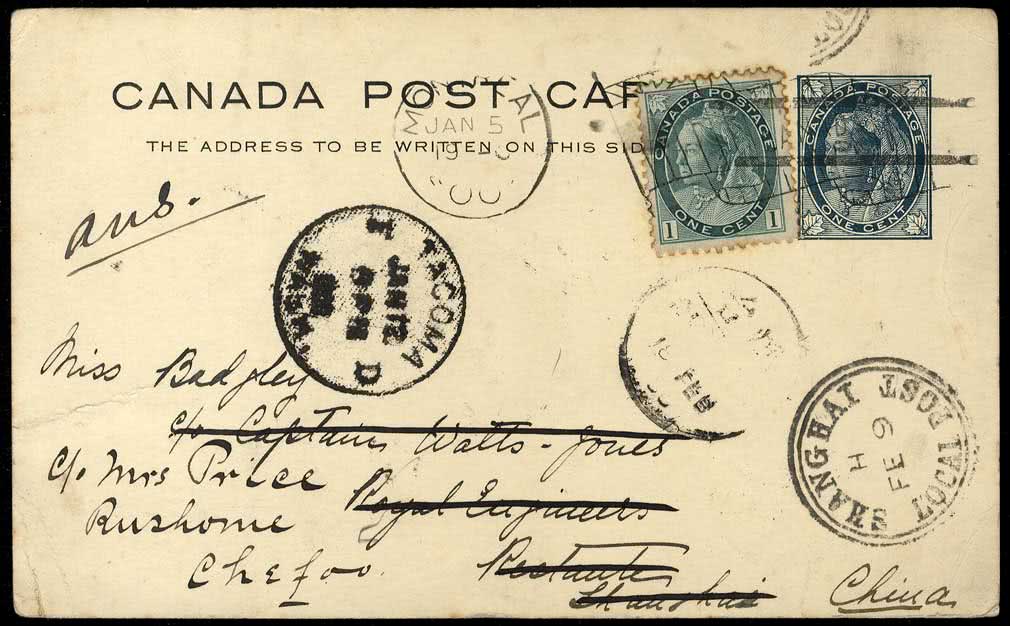 CANADA POST CAR
THE ADDRESS TO BE WRITTEN ON THIS SID
MON AL
JAN 5
19
00
CANADA POSTAGE
1 ONE CENT 1
CANADA POSTAGE
ONE CENT
ans.
TACOMA
JAN 12
D
FEB
SHANGHAI LOCAL POST
H
FE 9
Miss Badgley
c/o Captain Watts-Jones
c/o Mrs Price
Royal Engineers
Rushome
Chefoo.
Restante
Shanghai
China